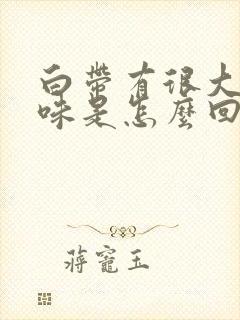 白带有很大
味是怎麽回
蒋寵玉